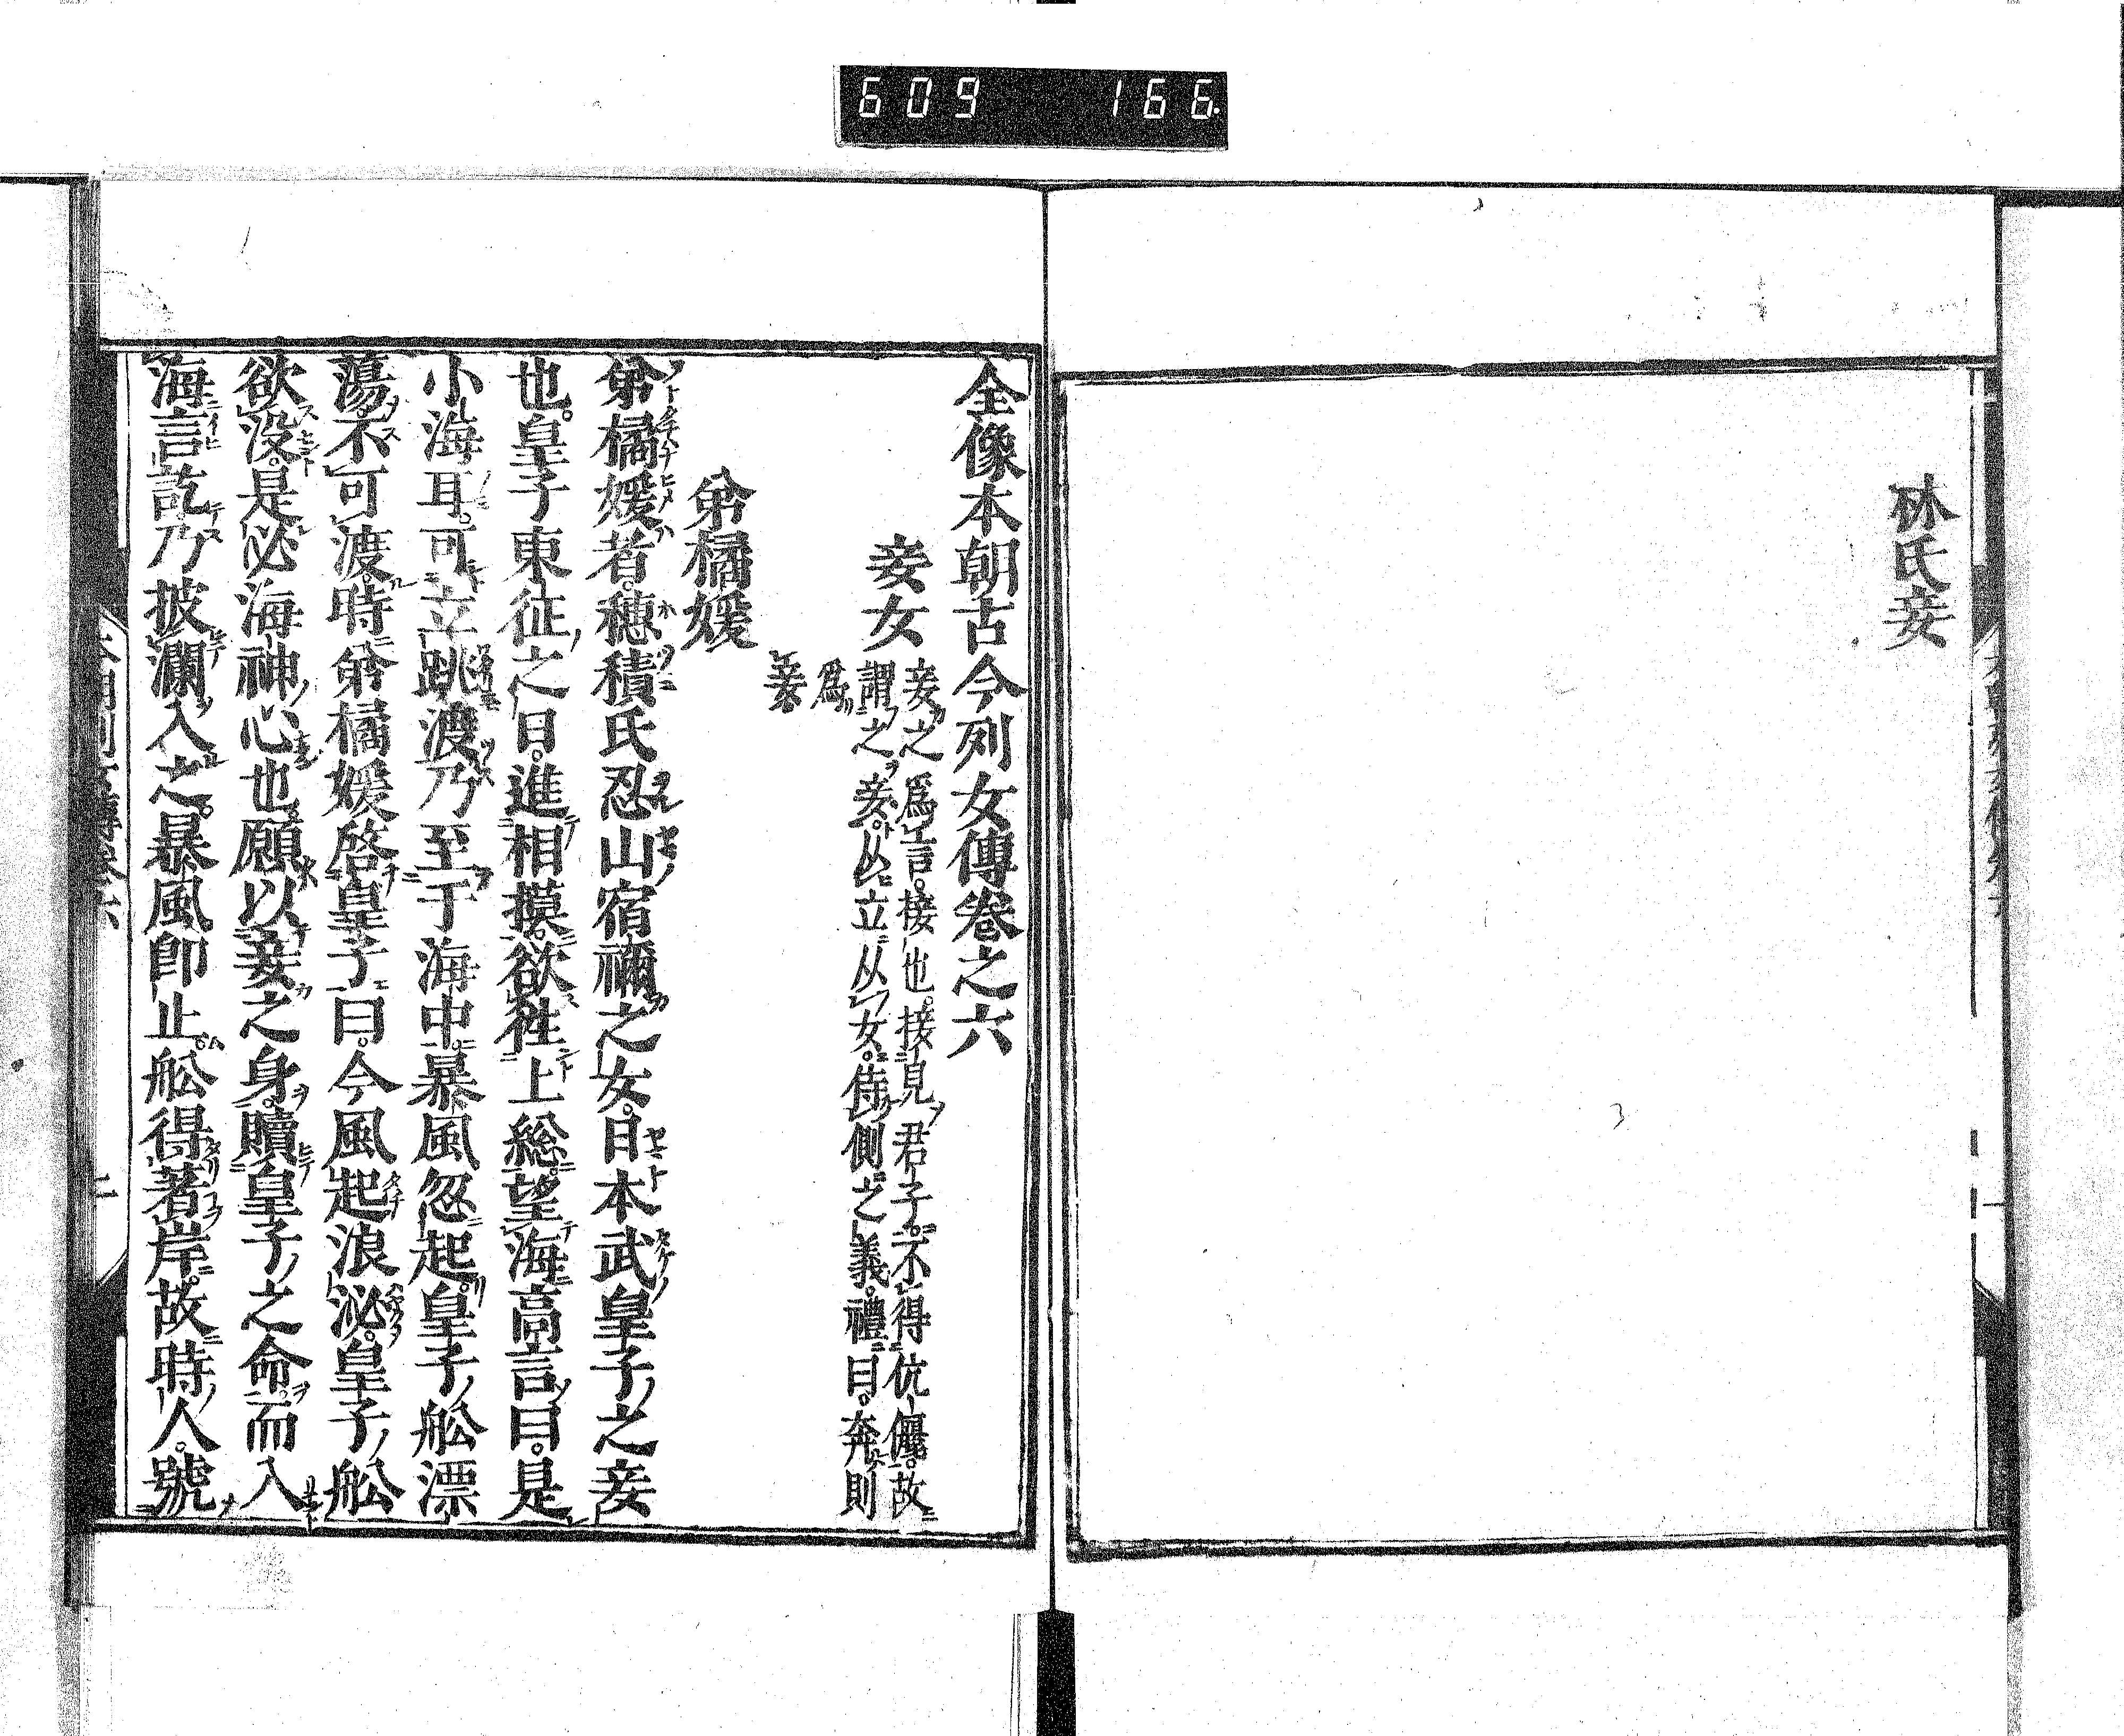 609 166.
林氏妾
全像本朝古今列女傳卷之六
妾女
妾之爲言。接也。接見君子。不得伉儷。故
謂之妾。从立从女。侍側之義。禮曰。奔則
爲
妾
弟橘媛
弟橘媛者。穗積氏忍山宿禰之女。日本武皇子之妾
也。皇子東征之日。進相摸。欲往上総。望海高言曰。是
小海耳。可立跳渡。乃至于海中。暴風忽起。皇子舩漂
蕩。不可渡。時弟橘媛啓皇子曰。今風起浪泌。皇子舩
欲沒。是必海神心也。願以妾之身。贖皇子之命。而入
海言訖。乃披瀾入之。暴風即止。舩得著岸。故時人。號